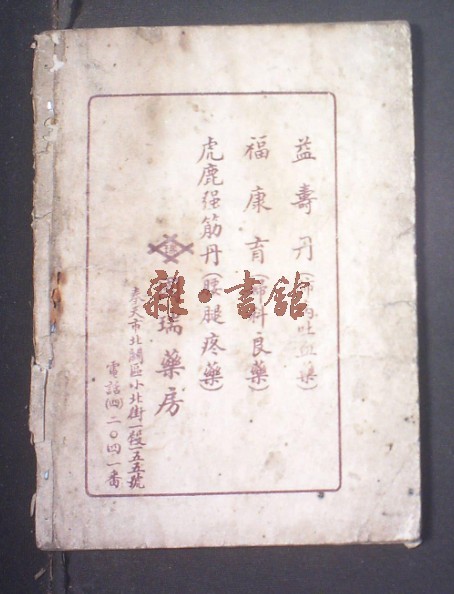 益壽丹(吐血藥)
福康育(婦科良藥)
虎鹿强筋丹(腰腿疼藥)
瑞藥房
奉天市北關區小北街一段一五五號
電話(四)二〇四一番
雜·書館